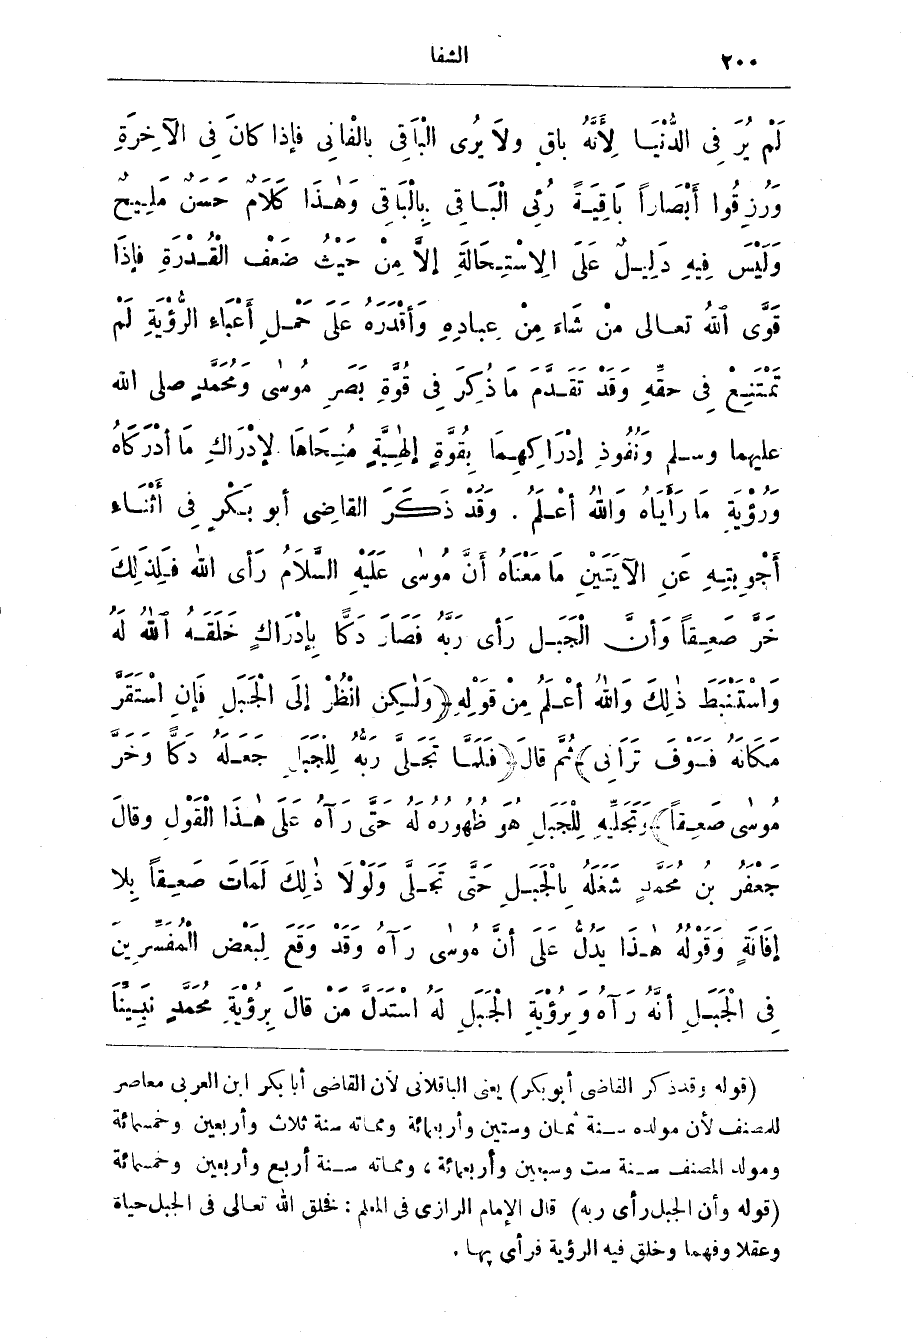 ٢٠٠
الشفا
لَمْ يُرَ فِى الدُّنْيَـا لِأَنَّهُ بَاقٍ ولَا يُرَى الْبَاقِى بالْفَانِى فإذا كانَ فِى الآخِرَةِ
وَرُزِقُوا أَبْصَاراً بَاقِيَـةً رُئِىَ الْبَـاقِى بِالْبَاقِى وَهٰـذَا كَلَامٌ حَسَنٌ مَلِـيحٌ
وَلَيْسَ فِيهِ دَلِيـلٌ عَلَى الِاسْتِـحَالَةِ إلَّا مِنْ حَيْثُ ضَعْف الْقُـدْرَةِ فإذَا
قَوَّى اللهُ تعـالى منْ شَاءَ مِنْ عِبادِهِ وَأقْدَرَهُ علَى حَمْـلِ أَعْبَاءِ الرُّؤْيَةِ لَمْ
تَمْتَنِـعْ فِى حقِّهِ وَقَدْ تَقَـدَّمَ مَا ذُكِرَ فِى قُوَّةِ بَصَرِ مُوسَى وَمُحَمَّدٍ صلى الله
عليهما وسـلم وَنُفُوذِ إدْرَاكِهِـمَا بِقُوَّةٍ إلٰهِيَّةٍ مُنِـحَاهَا لإدْرَاكِ مَا أدْرَكَاهُ
وَرُؤْيَةِ مَا رَأَيَاهُ وَاللهُ أعْـلَمُ . وَقَدْ ذَكَـرَ القاضِى أبو بَـكْرٍ فِى أَثْنَـاء
أَجْوِبَتِـهِ عَنِ الآيَتَيْنِ مَا مَعْنَاهُ أَنَّ مُوسٰى عَلَيْهِ السَّلَامُ رَأى اللهَ فَـلِذلِكَ
خَرَّ صَعِـقاً وَأنَّ الْجَبَـلَ رَأى رَبَّهُ فَصَارَ دَكًّا بِإدْرَاكٍ خَلَقَـهُ اللهُ لَهُ
وَاسْتَنْبَطَ ذٰلِكَ وَاللهُ أعْـلَمُ مِنْ قَوْلِهِ ﴿وَلٰـكِنِ انْظُرْ إلَى الْجَبَلِ فَإنِ اسْتَقَرَّ
مَكَانَهُ فَسَوْفَ تَرَانِى﴾ ثُمَّ قالَ ﴿فَلَمَّـا تَجَلَّى رَبُّهُ لِلْجَبَلِ جَعَـلَهُ دَكًّا وَخَرَّ
مُوسٰى صَعِـقاً﴾ وَتَجَلِّيهِ لِلْجَبَلِ هُوَ ظُهُورُهُ لَهُ حَتَّى رَآهُ عَلَى هٰـذَا الْقَوْلِ وقالَ
جَعْفَرُ بنُ مُحَمَّدٍ شَغَلَهُ بِالْجَبَـلِ حَتَّى تَجَـلَّى وَلَوْلَا ذٰلِكَ لَمَاتَ صَعِـقاً بِلا
إفَاقَةٍ وَقَوْلُهُ هٰـذَا يَدُلُّ عَلَى أنَّ مُوسٰى رَآهُ وَقَدْ وَقَعَ لِبَعْضِ الْمُفَسِّرِينَ
فِى الْجَبَـلِ أنَّهُ رَآهُ وَبِرُؤْيَةِ الْجَبَلِ لَهُ اسْتَدَلَّ مَنْ قالَ بِرُؤْيَةِ مُحَمَّدٍ نَبِيِّنَا
(قوله وقد ذكر القاضى أبو بكر) يعنى الباقلانى لأن القاضى أبا بكر ابن العربى معاصر
للمصنف لأن مولده سـنة ثمان وستين وأربعمائة ومماته سنة ثلاث وأربعين وخمسمائة
ومولد المصنف سـنة ست وسبعين وأربعمائة ، ومماته سـنة أربع وأربعين وخمسمائة
(قوله وأن الجبل رأى ربه) قال الإمام الرازى فى المعلم : فخلق الله تعالى فى الجبل حياة
وعقلا وفهما وخلق فيه الرؤية فرأى بها .